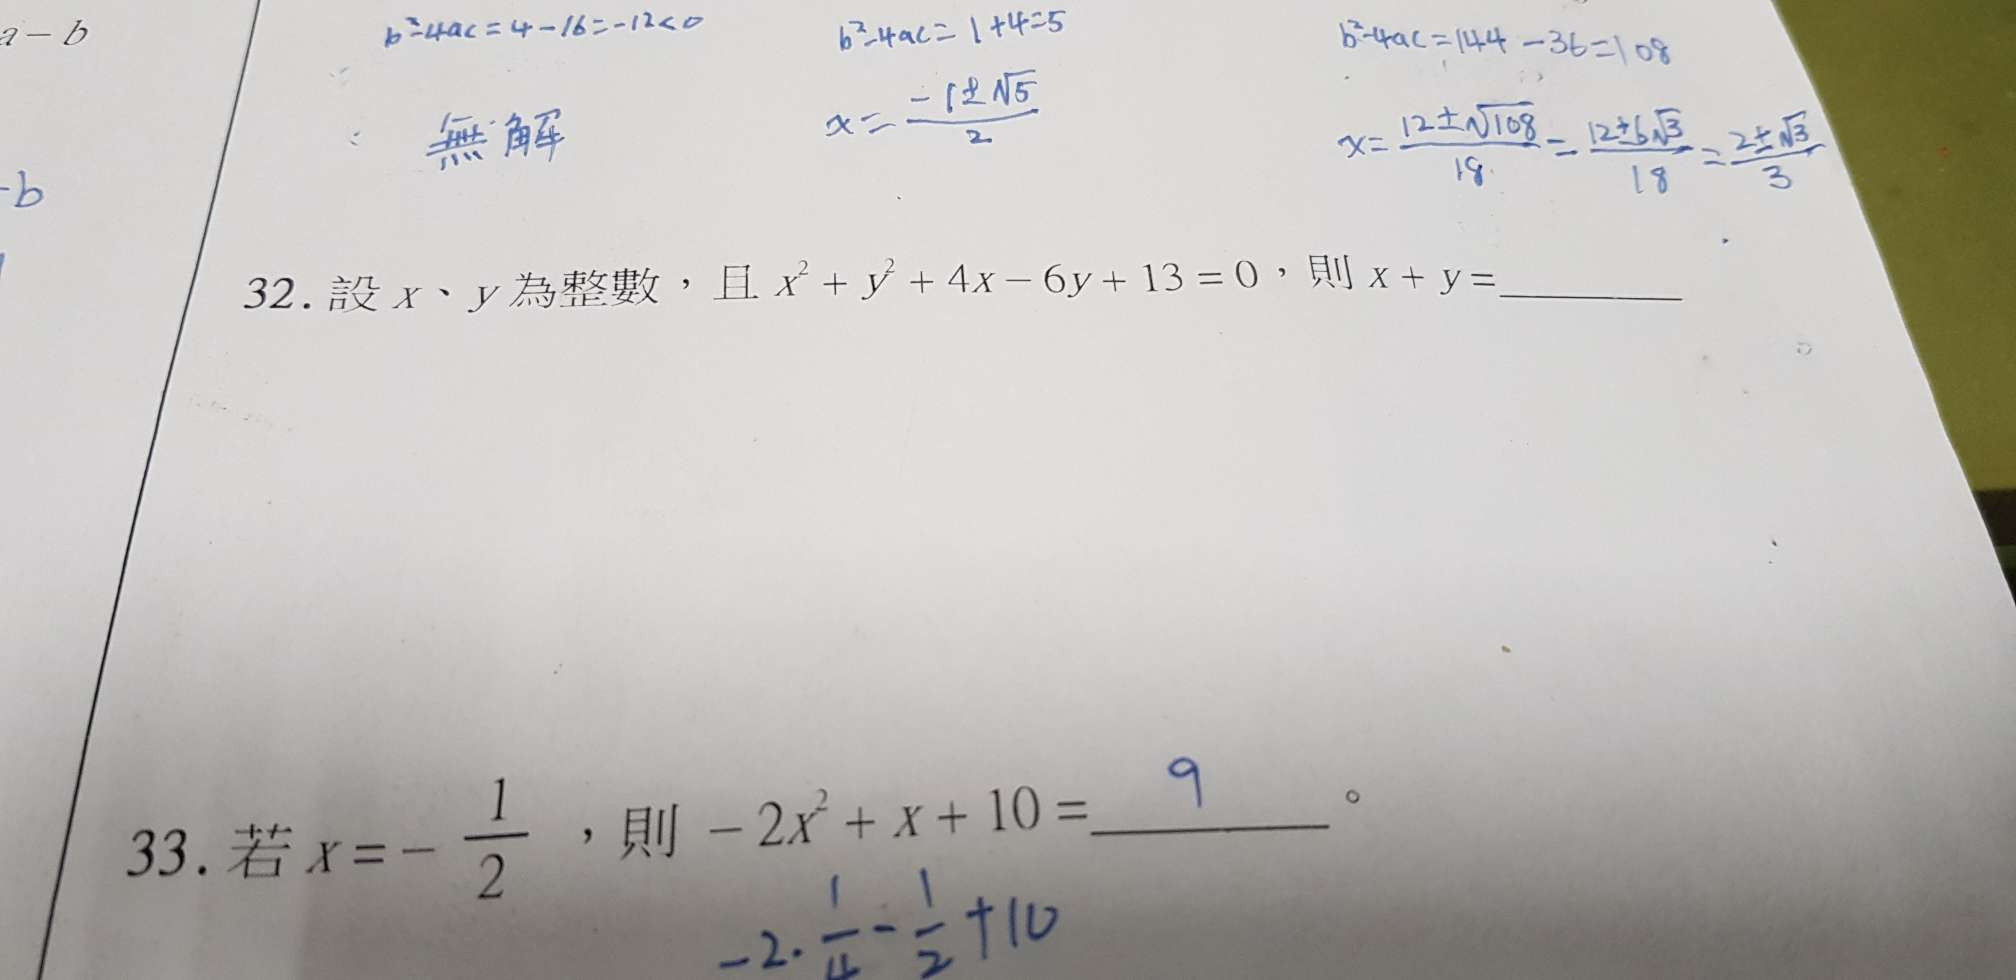 a − b
b²-4ac = 4 - 16 = -12 < 0
b²-4ac = 1 + 4 = 5
b²-4ac = 144 - 36 = 108
無解
x = \frac{-1±√5}{2}
x = \frac{12±√108}{18} = \frac{12±6√3}{18} = \frac{2±√3}{3}
-b
32. 設 x、y 為整數，且 x² + y² + 4x − 6y + 13 = 0，則 x + y = ________
33. 若 x = − \frac{1}{2}，則 − 2x² + x + 10 = 9 。
-2 · \frac{1}{4} - \frac{1}{2} + 10